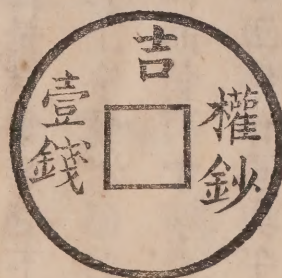 吉
權鈔
壹錢